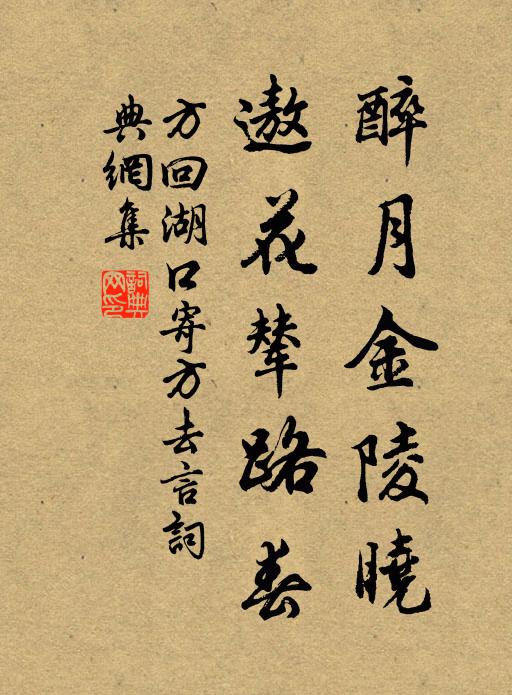 醉月金陵曉
遨花輦路春
方回湖口寄方去言詞
典網集
詞典網印